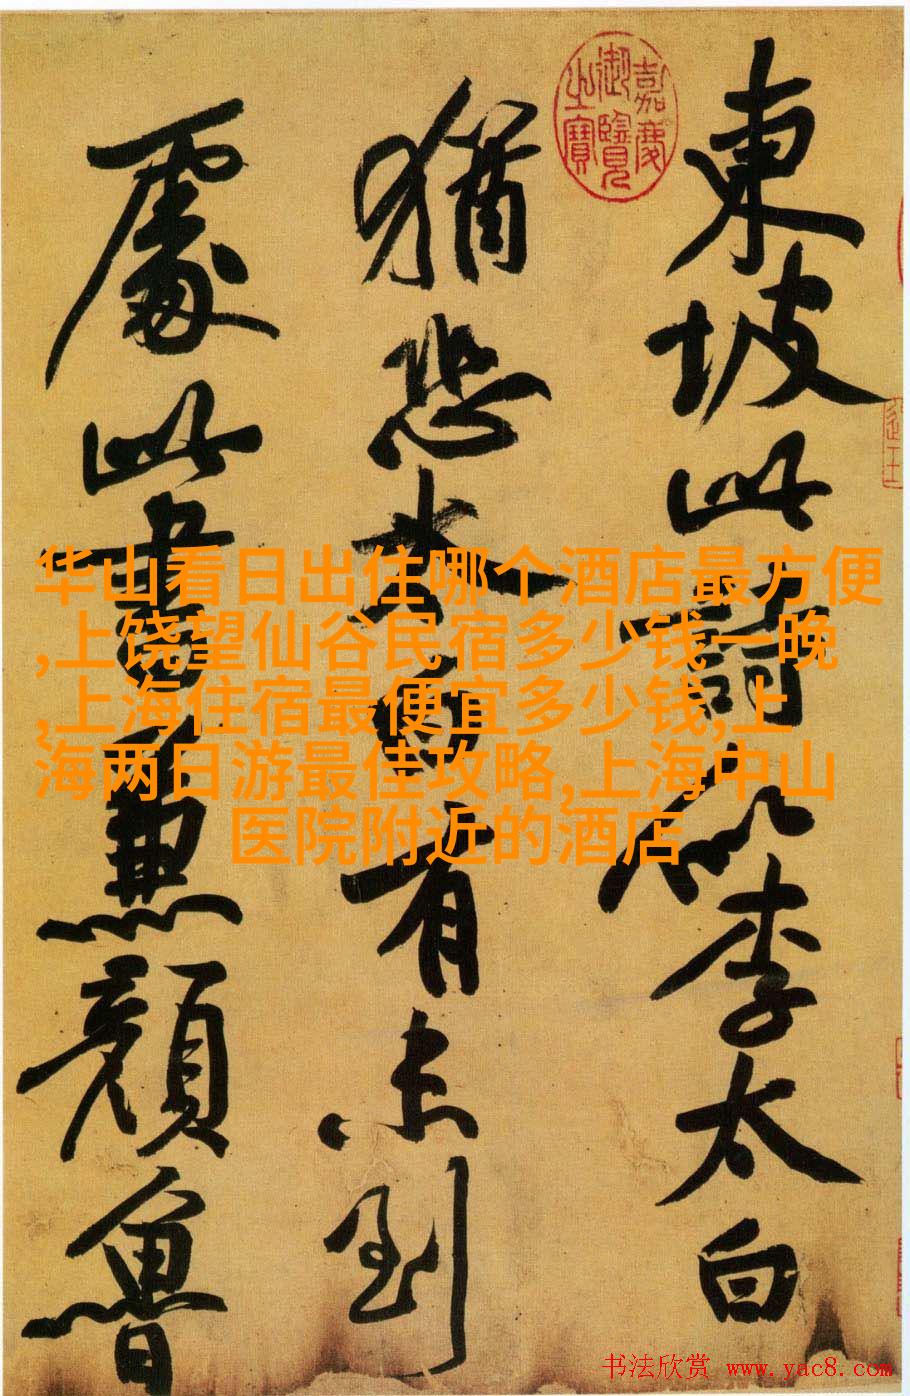 東坡此詩似李太白
猶恐太白有未到
處此書兼顏魯
嘉慶
御覽
之寶
华山看日出住哪个酒店最方便
,上饶望仙谷民宿多少钱一晚
,上海住宿最便宜多少钱,上
海两日游最佳攻略,上海中山
医院附近的酒店
书法欣赏 www.yac8.com